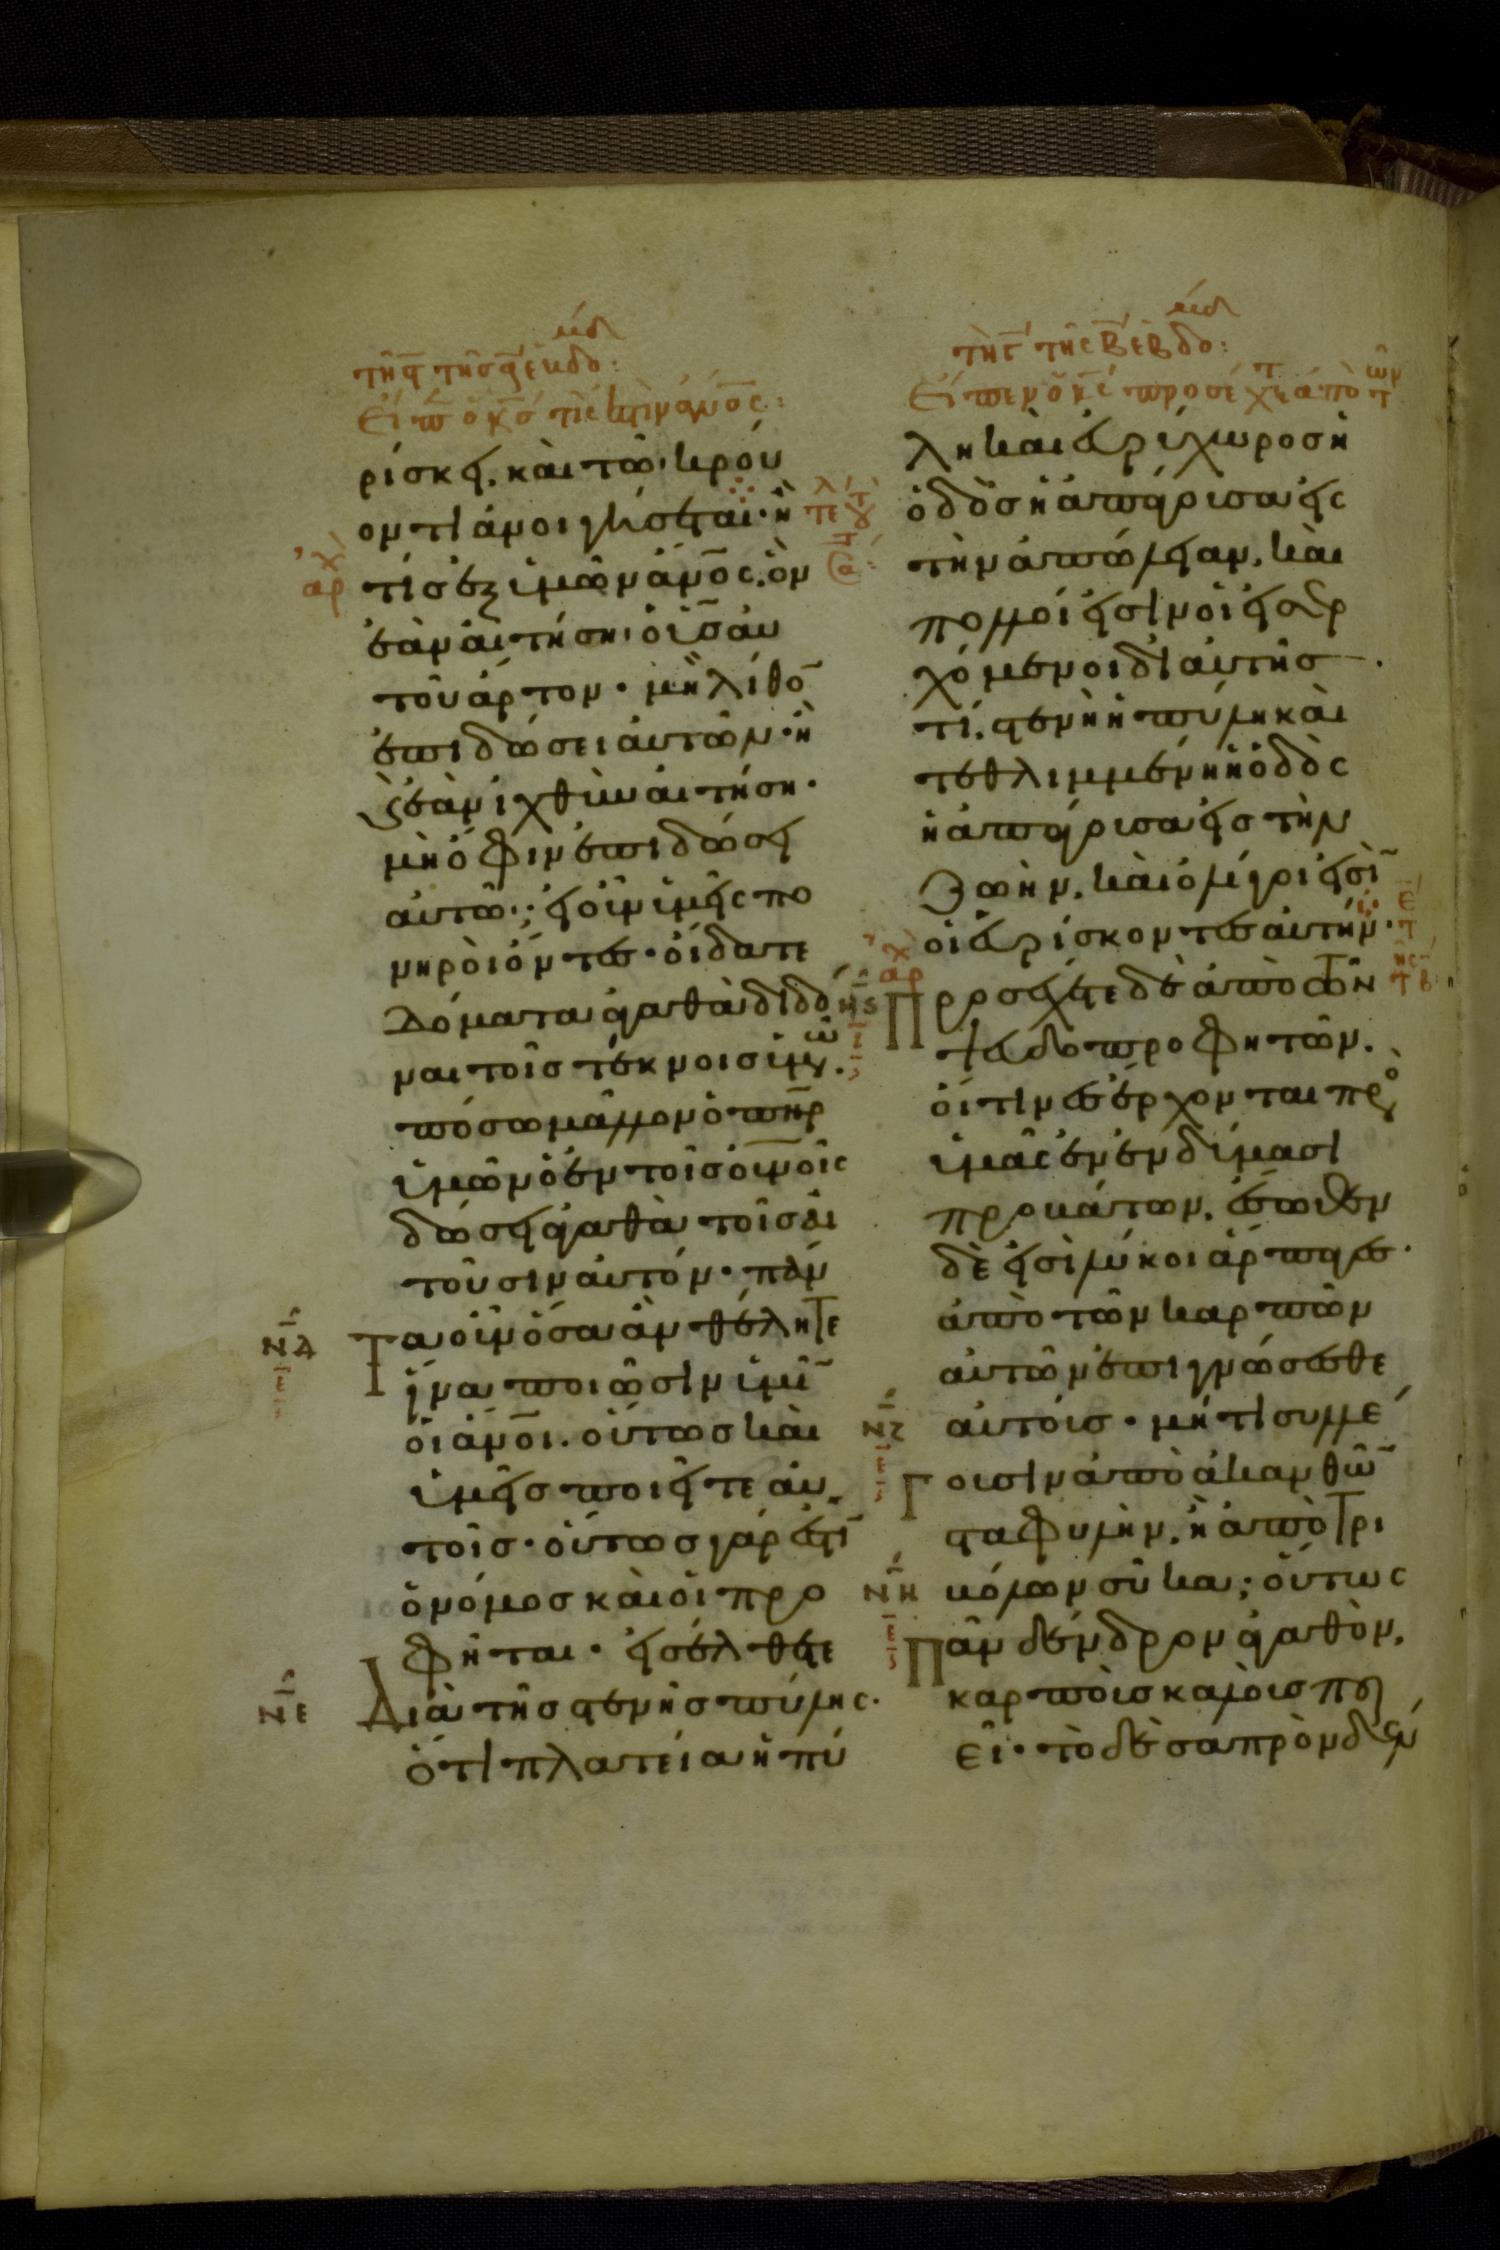 ρίσκει. καὶ τῶ κρού
οντι ἀνοιγήσεται· ἢ
τίς ἐξ ὑμῶν ἄν̅ο̅ς. ὃν
ἐὰν αἰτήση ὁ υ̅ς̅ αὐ
τοῦ ἄρτον· μὴ λίθο̅
ἐπιδώσει αὐτῶ· ἢ
ς ἐὰν ἰχθὺν αἰτήση·
μὴ ὄφιν ἐπιδώσει
αὐτῶ; εἰ οὖν ὑμεῖς πο
νηρὸι ὄντες· οἴδατε
δόματα ἀγαθὰ διδό
ναι τοῖς τέκνοις ὑμῶν.
πόσω μᾶλλον ὁ π̅η̅ρ
ὑμῶν ὁ ἐν τοῖς ο̅υ̅νοῖς
δώσει ἀγαθὰ τοῖς αἰ
τοῦσιν αὐτόν· πάν
Τα οὖν ὅσα ἂν θέλητε
ἵνα ποιῶσιν ὑμῖ̅
οἱ ἄν̅ο̅ι. οὕτως καὶ
ὑμεῖς ποιεῖτε αὐ
τοῖς· οὕτως γάρ ἐστὶ̅
ὁ νόμος καὶ οἱ προ
φῆται· εἰσέλθετε
Διὰ τῆς στενῆς πύλης·
ὅτι πλατεία ἡ πύ
λη καὶ εὐρύχωρος ἡ
ὁδὸς ἡ ἀπάγουσα εἰς
τὴν ἀπώλειαν. καὶ
πολλοί εἰσιν οἱ εἰσερ
χόμενοι δι αὐτῆς.
τί. στενὴ ἡ πύλη καὶ
τεθλιμμένη ἡ ὁδὸς
ἡ ἀπάγουσα εἰς τὴν
ζωὴν. καὶ ὀλίγοι εἰσὶ̅
οἱ εὑρίσκοντες αὐτήν·
Προσέχετε δὲ ἀπὸ τῶν
ψευδοπροφητῶν.
οἵτινες ἔρχονται πρὸ
ὑμᾶς ἐν ἐνδύμασι
προβάτων. ἔσωθεν
δὲ εἰσὶ λύκοι ἅρπαγες·
ἀπὸ τῶν καρπῶν
αὐτῶν ἐπιγνώσεσθε
αὐτούς· μήτι συλλέ
Γουσιν ἀπὸ ἀκανθῶ̅
σταφυλὴν. ἢ ἀπὸ τρι
βόλων σῦκα; οὕτως
Πᾶν δένδρον ἀγαθὸν.
καρποὺς καλοὺς ποι
εῖ· τὸ δὲ σαπρὸν δέν